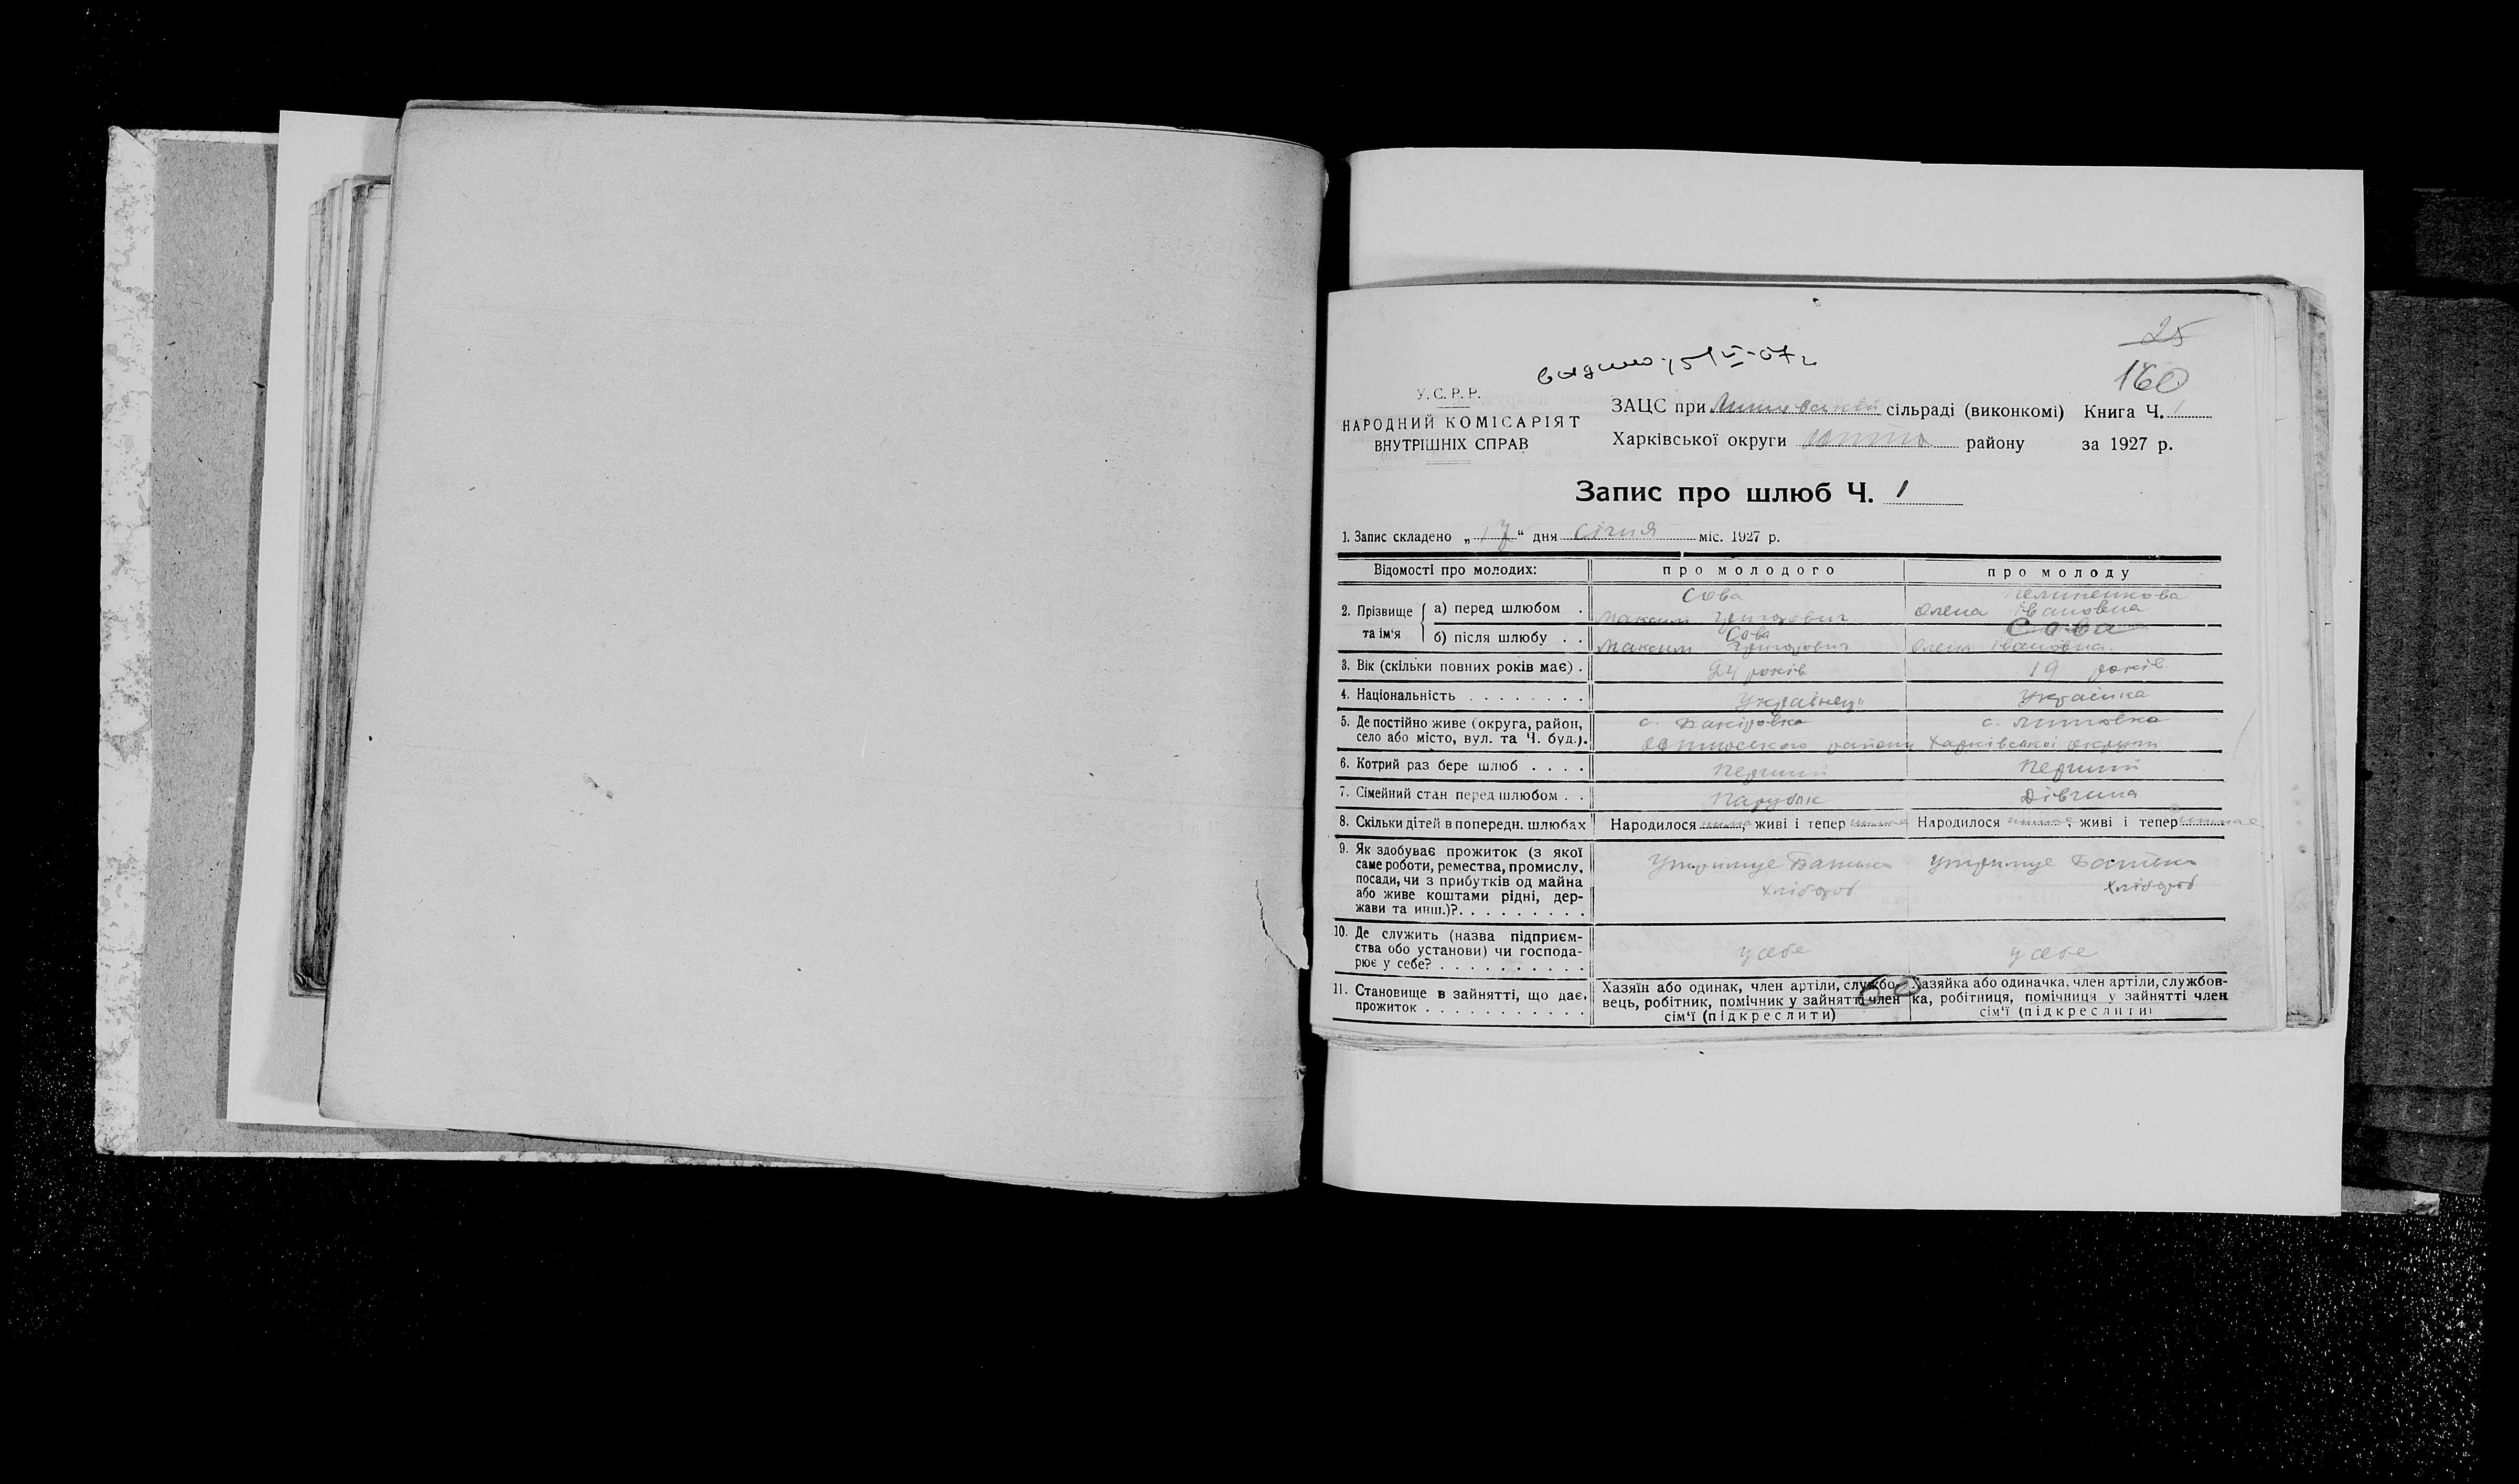 25
160
У.С.Р.Р.
НАРОДНИЙ КОМІСАРІЯТ
ВНУТРІШНІХ СПРАВ
ЗАЦС при сільраді (виконкомі) Книга Ч. 1
Харківської округи району за 1927 р.
Запис про шлюб Ч. 1
1. Запис складено „17“ дня січня міс. 1927 р.
Відомості про молодих: про молодого про молоду
2. Прізвище та ім'я
а) перед шлюбом . Сова
Максим Григорович Олена Івановна
б) після шлюбу . . Сова Сова
Максим Григорович Олена Івановна
3. Вік (скільки повних років має) . 24 років 19 років
4. Національність . . . . . . . . Українець Українка
5. Де постійно живе (округа, район, с. Бакіровка с. Липовка
село або місто, вул. та Ч. буд.). району Харківської округи
6. Котрий раз бере шлюб . . . . Перший Перший
7. Сімейний стан перед шлюбом . . Парубок Дівчина
8. Скільки дітей в попередн. шлюбах Народилося , живі і тепер Народилося , живі і тепер
9. Як здобуває прожиток (з якої
саме роботи, ремества, промислу,
посади, чи з прибутків од майна
або живе коштами рідні, дер-
жави та инш.)?. . . . . . . . .
утримує Батько
хлібороб
утримує Батько
хлібороб
10. Де служить (назва підприєм-
ства або установи) чи господа-
рює у себе? . . . . . . . . . .
у себе у себе
11. Становище в зайнятті, що дає,
прожиток . . . . . . . . . . .
Хазяїн або одинак, член артіли, службо-
вець, робітник, помічник у зайнятті член
сім'ї (підкреслити)
Хазяйка або одиначка, член артіли, службов-
ка, робітниця, помічниця у зайнятті член
сім'ї (підкреслити)